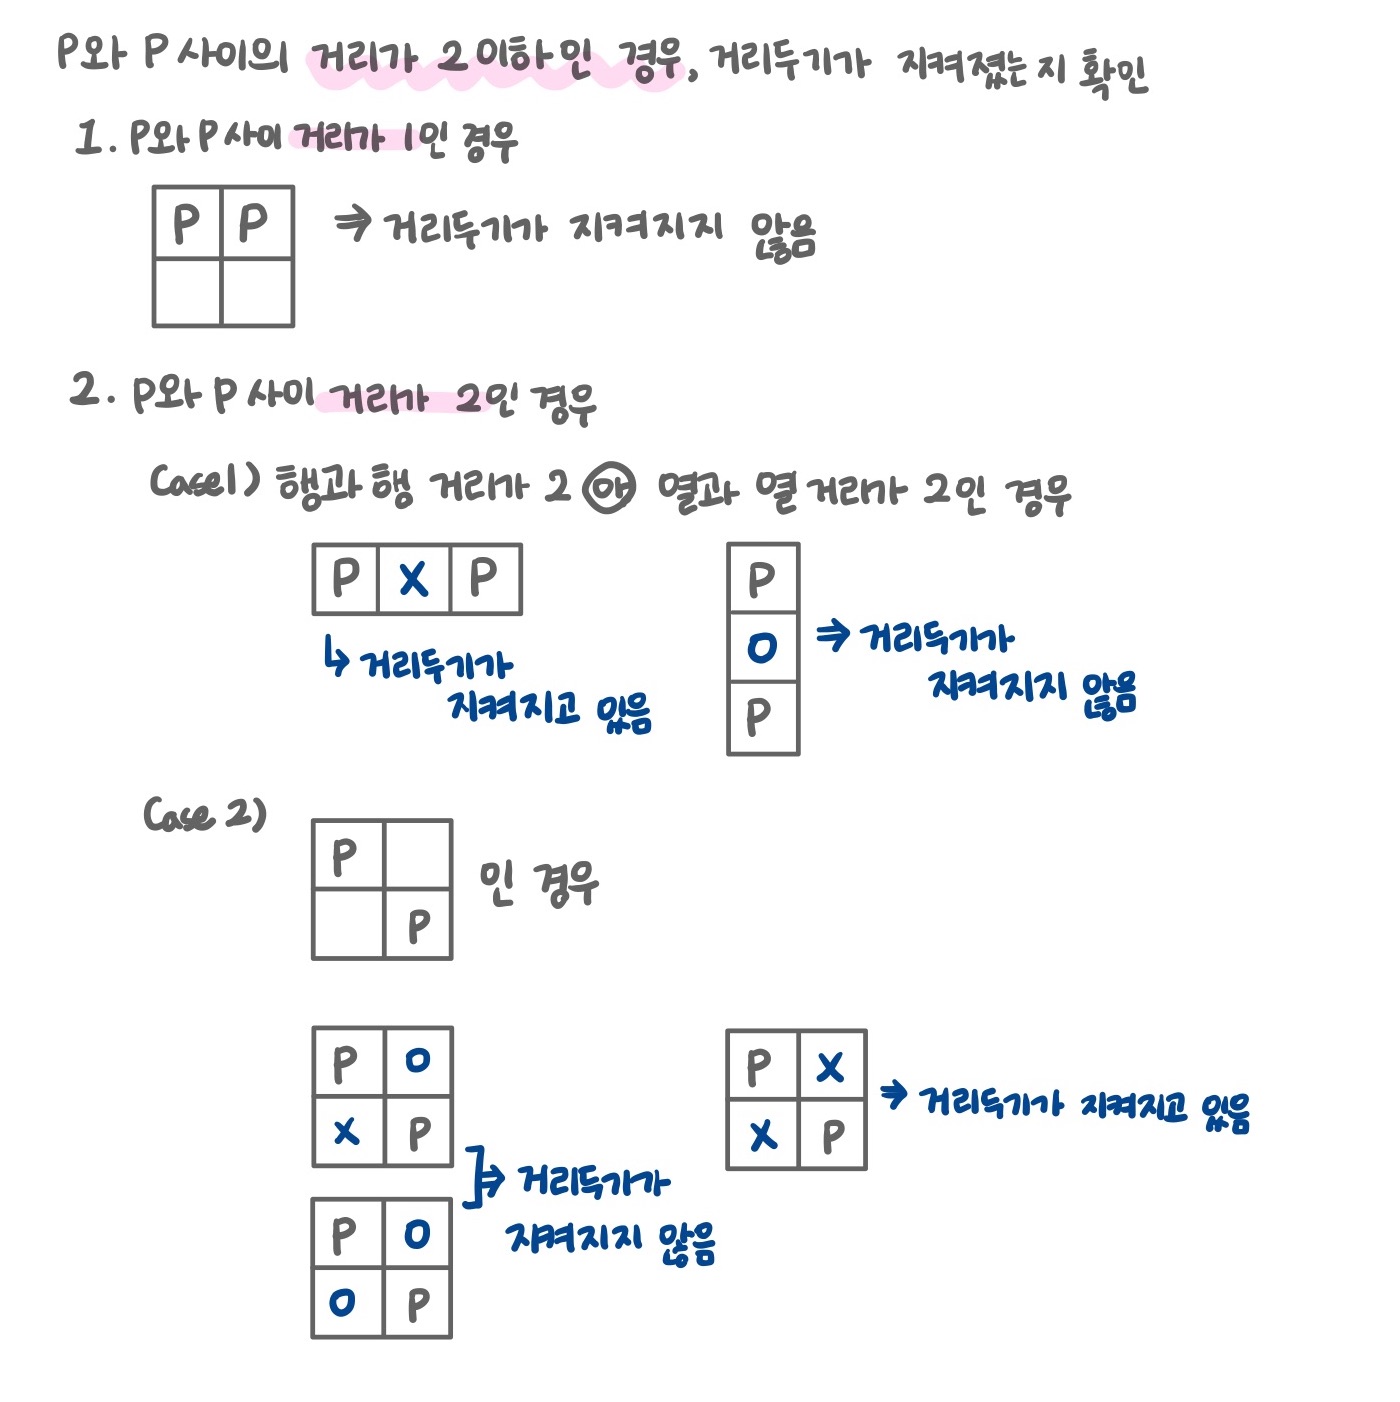 P와 P 사이의 거리가 2 이하인 경우, 거리두기가 지켜졌는지 확인
1. P와 P 사이 거리가 1인 경우
P P ⇒ 거리두기가 지켜지지 않음
2. P와 P 사이 거리가 2인 경우
Case1) 행과 행 거리가 2 or 열과 열 거리가 2인 경우
P X P
↳ 거리두기가
지켜지고 있음
P
O ⇒ 거리두기가
지켜지지 않음
P
Case 2)
P
P
인 경우
P O
X P
P O
O P
⇒ 거리두기가
지켜지지 않음
P X
X P
⇒ 거리두기가 지켜지고 있음